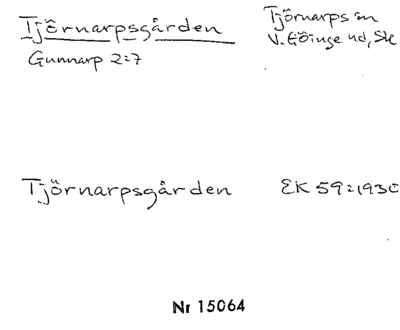 Tjörnarpsgården
Tjörnarps sn
V. Göinge hd, Sk
Gunnarp 2:7
Tjörnarpsgården
EK 59:1930
Nr 15064